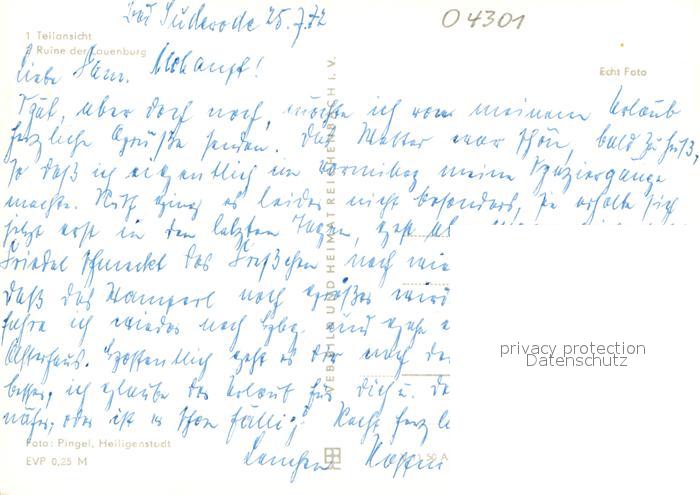 Bad Suderode 25.7.72
04301
1 Teilansicht
2 Ruine der Lauenburg
Echt Foto
Liebe Fam.
Spät, aber doch noch, möchte ich von meinem Urlaub
herzliche Grüße senden. Das Wetter war schön, bald zu heiß,
so daß ich eigentlich im Vormittag meine Spaziergänge
machte. ging es leider nicht besonders, sie erholte sich
jetzt erst in den letzten Tagen, geht
Friedel schmeckt das Fresschen noch wie
daß das Wamperl noch größer wird
fahre ich wieder nach Hbg. und gehe
Hoffentlich geht es Dir nach
besser, ich glaube der Urlaub für Dich u.
näher, oder ist er schon fällig? Recht herzl
VEB BILD UND HEIMAT REICHENBACH I. V.
privacy protection
Datenschutz
Foto: Pingel, Heiligenstadt
EVP 0,25 M